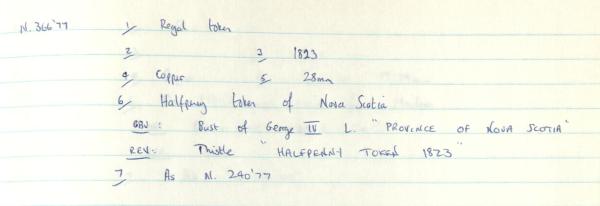 N. 366'77 1/ Regal token
2/ 3/ 1823
4/ Copper 5/ 28mm
6/ Halfpenny token of Nova Scotia
OBV: Bust of George IV L. "PROVINCE OF NOVA SCOTIA"
REV: Thistle "HALFPENNY TOKEN 1823"
7/ As N. 240'77